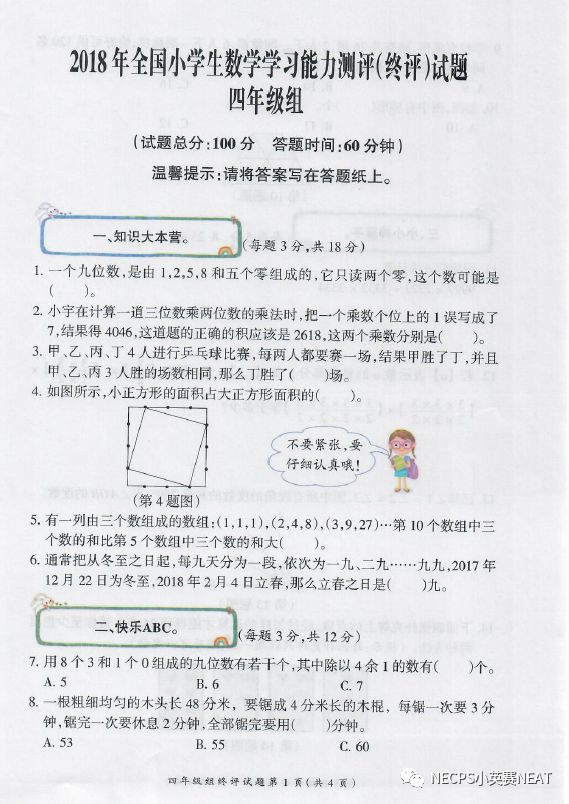 2018年全国小学生数学学习能力测评(终评)试题
四年级组
(试题总分:100分 答题时间:60分钟)
温馨提示:请将答案写在答题纸上。
一、知识大本营。(每题3分,共18分)
1. 一个九位数,是由1,2,5,8和五个零组成的,它只读两个零,这个数可能是
( )。
2. 小宇在计算一道三位数乘两位数的乘法时,把一个乘数个位上的1误写成了
7,结果得4046,这道题的正确的积应该是2618,这两个乘数分别是( )。
3. 甲、乙、丙、丁4人进行乒乓球比赛,每两人都要赛一场,结果甲胜了丁,并且
甲、乙、丙3人胜的场数相同,那么丁胜了( )场。
4. 如图所示,小正方形的面积占大正方形面积的( )。
不要紧张,要
仔细认真哦!
(第4题图)
5. 有一列由三个数组成的数组:(1,1,1),(2,4,8),(3,9,27)…第10个数组中三
个数的和比第5个数组中三个数的和大( )。
6. 通常把从冬至之日起,每九天分为一段,依次为一九、二九……九九,2017年
12月22日为冬至,2018年2月4日立春,那么立春之日是( )九。
二、快乐ABC。(每题3分,共12分)
7. 用8个3和1个0组成的九位数有若干个,其中除以4余1的数有( )个。
A. 5 B. 6 C. 7
8. 一根粗细均匀的木头长48分米,要锯成4分米长的木棍,每锯一次要3分
钟,锯完一次要休息2分钟,全部锯完要用( )分钟。
A. 53 B. 55 C. 60
四年级组终评试题第1页(共4页)
NECPS小英赛NEAT